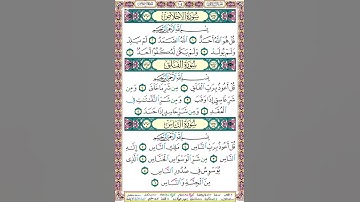 سُورَةُ الإِخْلَاصِ
بِسْمِ اللَّهِ الرَّحْمَٰنِ الرَّحِيمِ
قُلْ هُوَ اللَّهُ أَحَدٌ ١ اللَّهُ الصَّمَدُ ٢ لَمْ يَلِدْ
وَلَمْ يُولَدْ ٣ وَلَمْ يَكُن لَّهُ كُفُوًا أَحَدٌ ٤
سُورَةُ الْفَلَقِ
بِسْمِ اللَّهِ الرَّحْمَٰنِ الرَّحِيمِ
قُلْ أَعُوذُ بِرَبِّ الْفَلَقِ ١ مِن شَرِّ مَا خَلَقَ ٢ وَمِن
شَرِّ غَاسِقٍ إِذَا وَقَبَ ٣ وَمِن شَرِّ النَّفَّاثَاتِ فِي
الْعُقَدِ ٤ وَمِن شَرِّ حَاسِدٍ إِذَا حَسَدَ ٥
سُورَةُ النَّاسِ
بِسْمِ اللَّهِ الرَّحْمَٰنِ الرَّحِيمِ
قُلْ أَعُوذُ بِرَبِّ النَّاسِ ١ مَلِكِ النَّاسِ ٢ إِلَٰهِ
النَّاسِ ٣ مِن شَرِّ الْوَسْوَاسِ الْخَنَّاسِ ٤ الَّذِي
يُوَسْوِسُ فِي صُدُورِ النَّاسِ ٥
مِنَ الْجِنَّةِ وَالنَّاسِ ٦